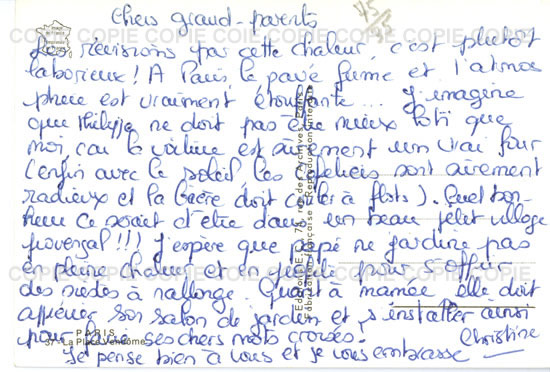 75
Chers grand-parents
Les révisions par cette chaleur, c'est plutôt
laborieux! A Paris le pavé fume et l'atmos
phère est vraiment étouffante... J'imagine
que Philippe ne doit pas être mieux loti que
moi car la voiture est sûrement un vrai four
(enfin avec le soleil les sont sûrement
radieux et la bière doit couler à flots). Quel bon-
heur ce serait d'être dans un beau petit village
provençal!!! J'espère que papé ne jardine pas
en pleine chaleur et en pour s'offrir
des siestes à rallonge. Quant à mamée, elle doit
apprécier son salon de jardin et s'installer ainsi
pour faire ses chers mots croisés.
Christine
Je pense bien à vous et je vous embrasse
PARIS
37 - La Place Vendôme
COPIE COPIE COPIE COPIE COPIE COPIE